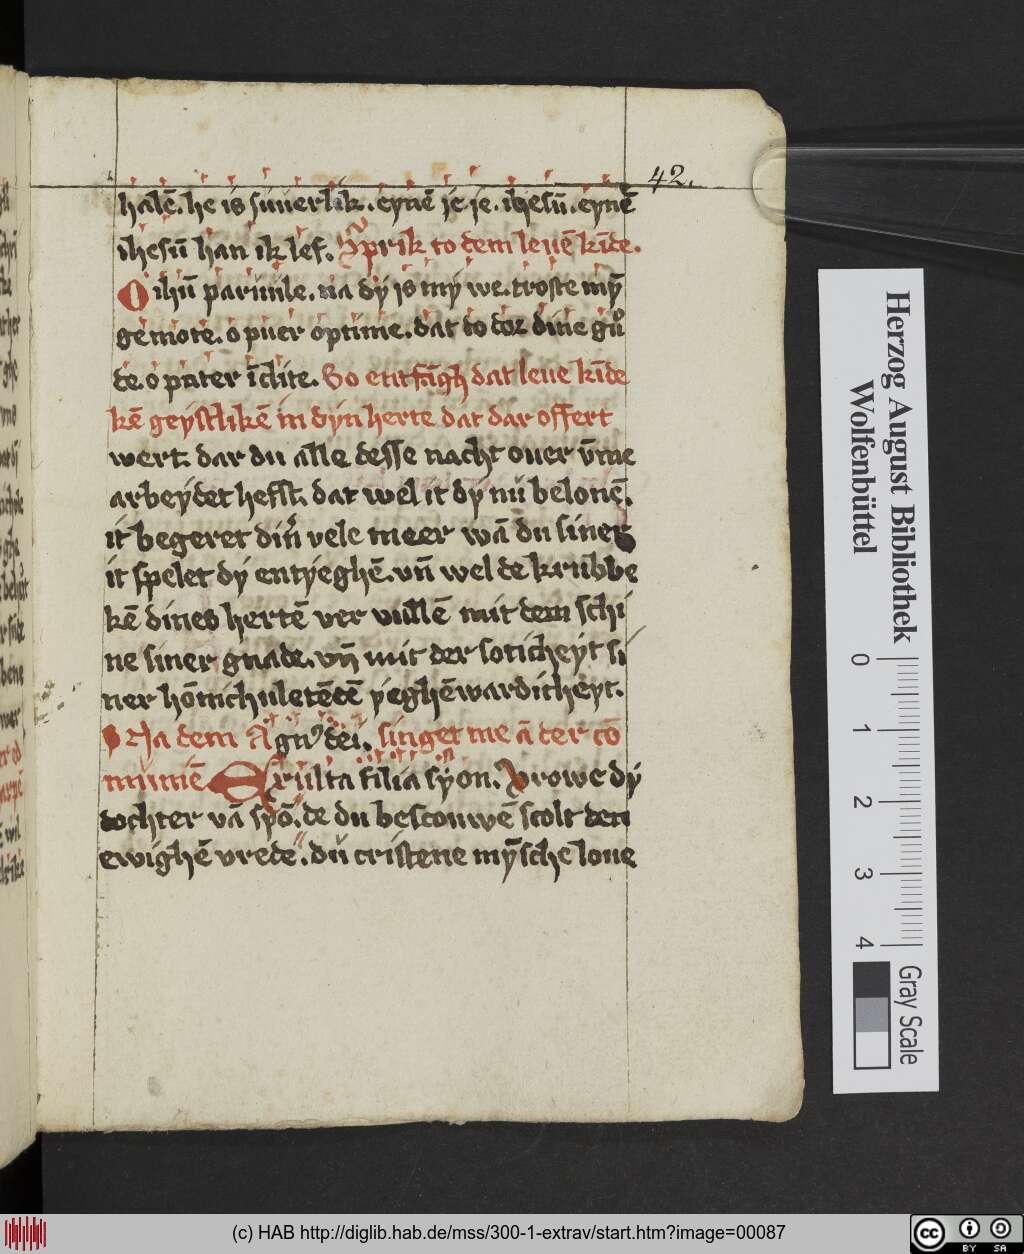 42.
halē. he is suuerlik. eynē ie ie. ihesū. eynē
ihesū han ik lef. Sprik to dem leuē kīde.
O ihū paruule. na dy is my we. troste mȳ
gemote. o puer optime. dat to dor dine gu
de. o pater īclite. So entfāgh dat leue kīde
kē geystlikē in dyn herte dat dar offert
wert. dar du alle desse nacht ouer v̄me
arbeydet hefst. dat wel it dy nu belonē.
it begeret din vele meer wā du siner
it spelet dy entyeghē. vn̄ wel de krubbe
kē dines hertē ver vullē mit dem schi
ne siner gnade. vn̄ mit der soticheyt si
ner hōnichuletēdē yeghēwardicheyt.
Na dem Agnꝰ dei. singet me ā der cō
muniē Exulta filia syon. Vrowe dy
dochter vā syō. de du bescouwē scolt den
ewighē vrede. du cristene mȳsche loue
Herzog August Bibliothek
Wolfenbüttel
0 1 2 3 4
Gray Scale
(c) HAB http://diglib.hab.de/mss/300-1-extrav/start.htm?image=00087
cc BY SA